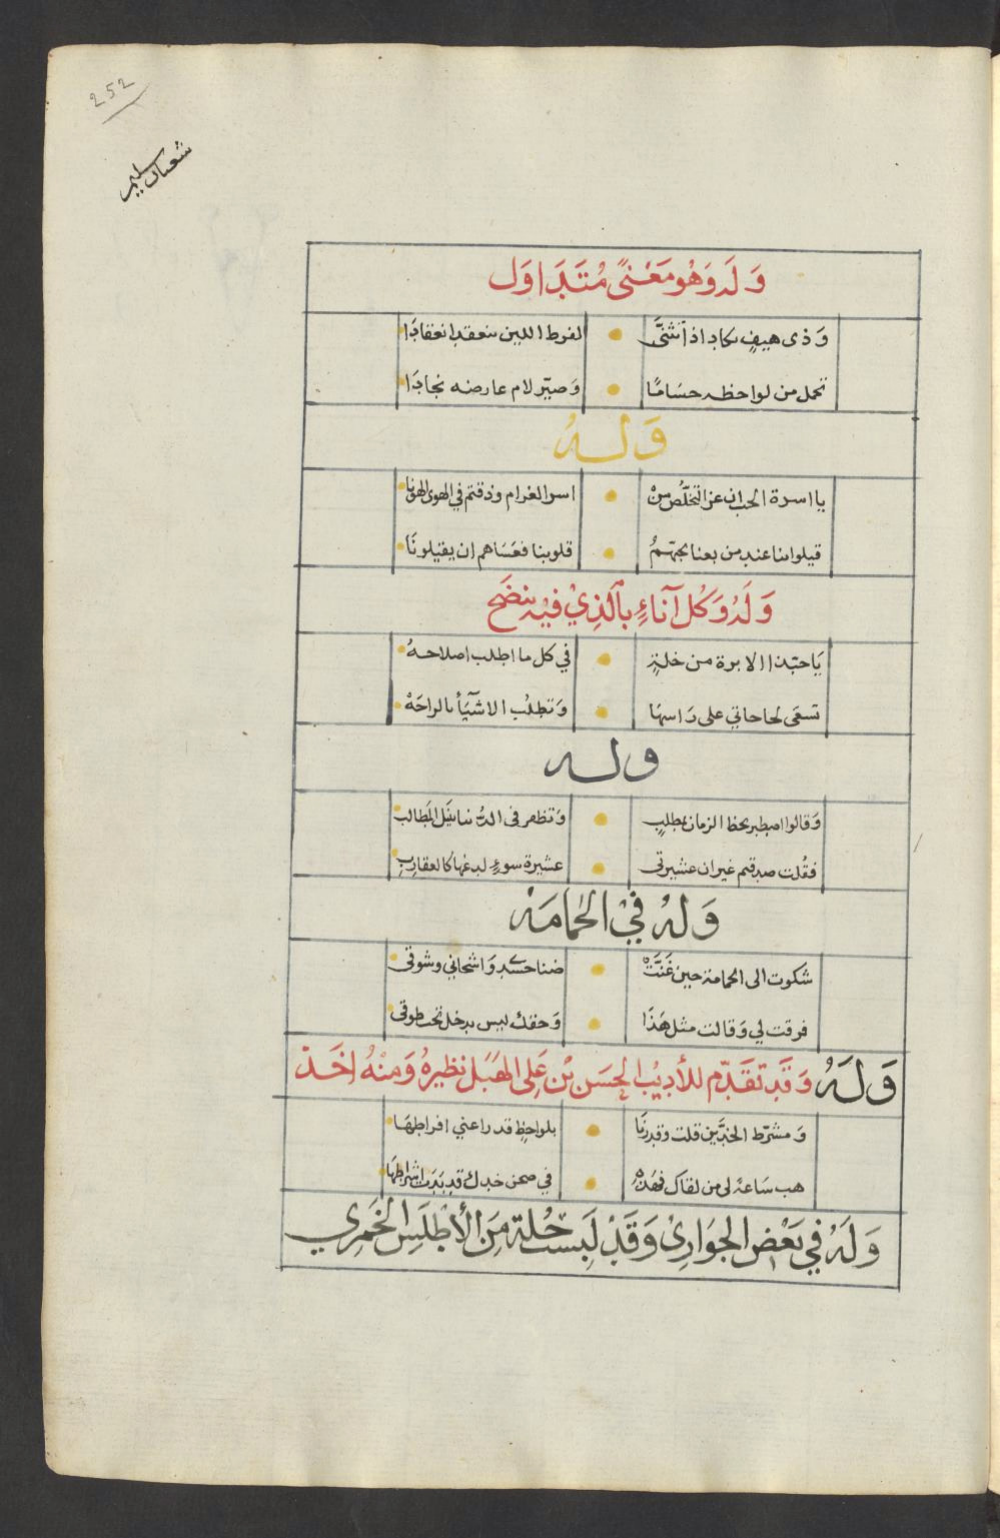 252
شعبان سليم
وَلَه وَهُو مَعْنًى مُتَدَاوَل
وَذى هيفٍ يكاد اذا تثنَّى • لفرط اللين ينعقد انعقادَا
تحمل من لواحظه حسَامًا • وَصيّر لام عارضه نجادَا
وَلهُ
يا اسرة الحب ان عز التخلُّص منْ • اسر الغرام وذقتم في الهوى الهونا
قيلوا بنا عند من بعنا بحبهمُ • قلوبنا فعَسَاهم ان يقيلونَا
وَلَهُ وَكُل آنَاءٍ بِالَّذِيْ فيْهِ ينضَح
يَا حبّذا الابرة من خلةٍ • في كل ما اطلب اصلاحهُ
تسعَى لحاحاتي على رَاسهَا • وَتطلُب الاشيَآء بالراحَهْ
وله
وَقالوا اصطبر بحظ الزمان بمطلبٍ • وَتظهر فى الدُّنيا بنيل المَطالب
فقُلت صدقتم غير ان عشيرتي • عشيرة سوءٍ لدغهَا كالعقاربِ
وَلهُ فيْ الحمَامَة
شكوت الى الحمامة حين غَنَّتْ • ضنا جسَدِي وَاشجاني وشوقى
فرقت لي وَقالت مثل هَذَا • وَحقك ليس يدخل تحت طوقى
وَلَهُ وَقَد تقَدّم للأديْب الحسَن بْن عَلى الهَبَل نظيرهُ وَمنْهُ اخَذ
وَمشرّط الخدَّين قلت وقد رنَا • بلواحظٍ قد راعني افراطهَا
هب سَاعة لى من لقاك فهَذهْ • في صحن خدك قد بَدَت اشراطهَا
وَلَهُ فيْ بَعْض الجوَارِيْ وَقَدْ لَبِسَت حُلة مِنَ الأَطْلَسِ الخَمْرِي